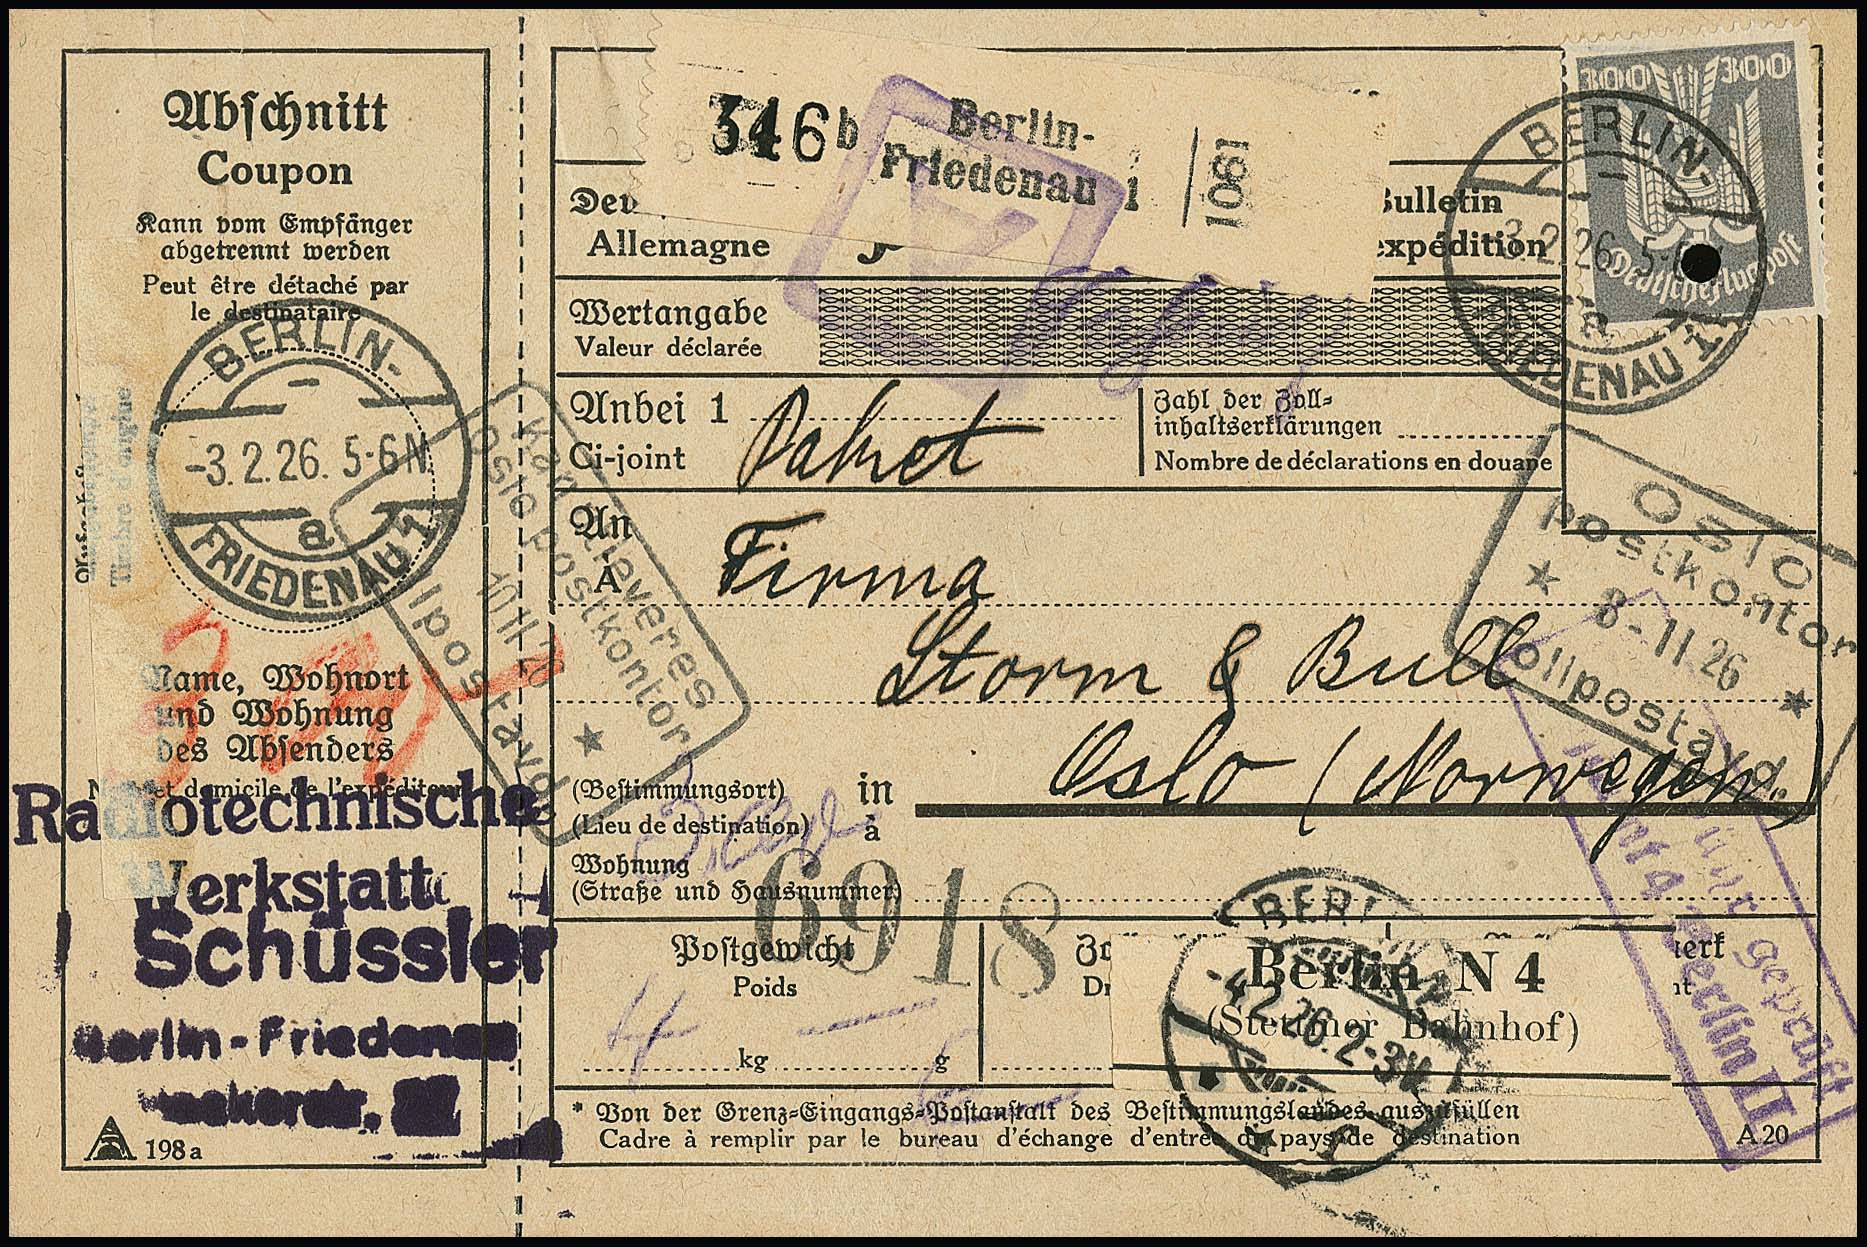 Abschnitt
Coupon
Kann vom Empfänger
abgetrennt werden
Peut être détaché par
le destinataire
BERLIN-
-3.2.26. 5-6N
a
FRIEDENAU 1
Timbre d'origine
Name, Wohnort
und Wohnung
des Absenders
domicile de l'expéditeur
Radiotechnische
Werkstatt
Schüssler
Berlin-Friedenau
198a
346 b
Berlin-
Friedenau 1
1081
Allemagne
Bulletin
expédition
300 300
Deutsche Flugpost
BERLIN-
3.2.26 5-
a
FRIEDENAU 1
Wertangabe
Valeur déclarée
Anbei 1 Paket
Ci-joint
Zahl der Zoll-
inhaltserklärungen
Nombre de déclarations en douane
Kan utleveres
Oslo postkontor
Oslo
postkontor
8-11.26
Tollpostavd.
An
À
Firma
Storm & Bull
(Bestimmungsort)
(Lieu de destination)
in
à
Oslo (Norwegen)
Wohnung
(Straße und Hausnummer)
6918
Postgewicht
Poids
4
kg
g
BERLIN
-4.2.26.2-3V
Berlin N 4
(Stettiner Bahnhof)
geprüft
Berlin II
* Von der Grenz-Eingangs-Postanstalt des Bestimmungslandes auszufüllen
Cadre à remplir par le bureau d'échange d'entrée du pays de destination
A 20